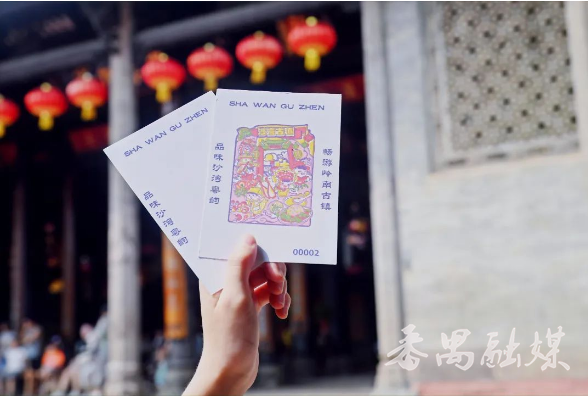 SHA WAN GU ZHEN
品味沙湾粤韵
SHA WAN GU ZHEN
品味沙湾粤韵
畅游岭南古镇
00002
番禺融媒